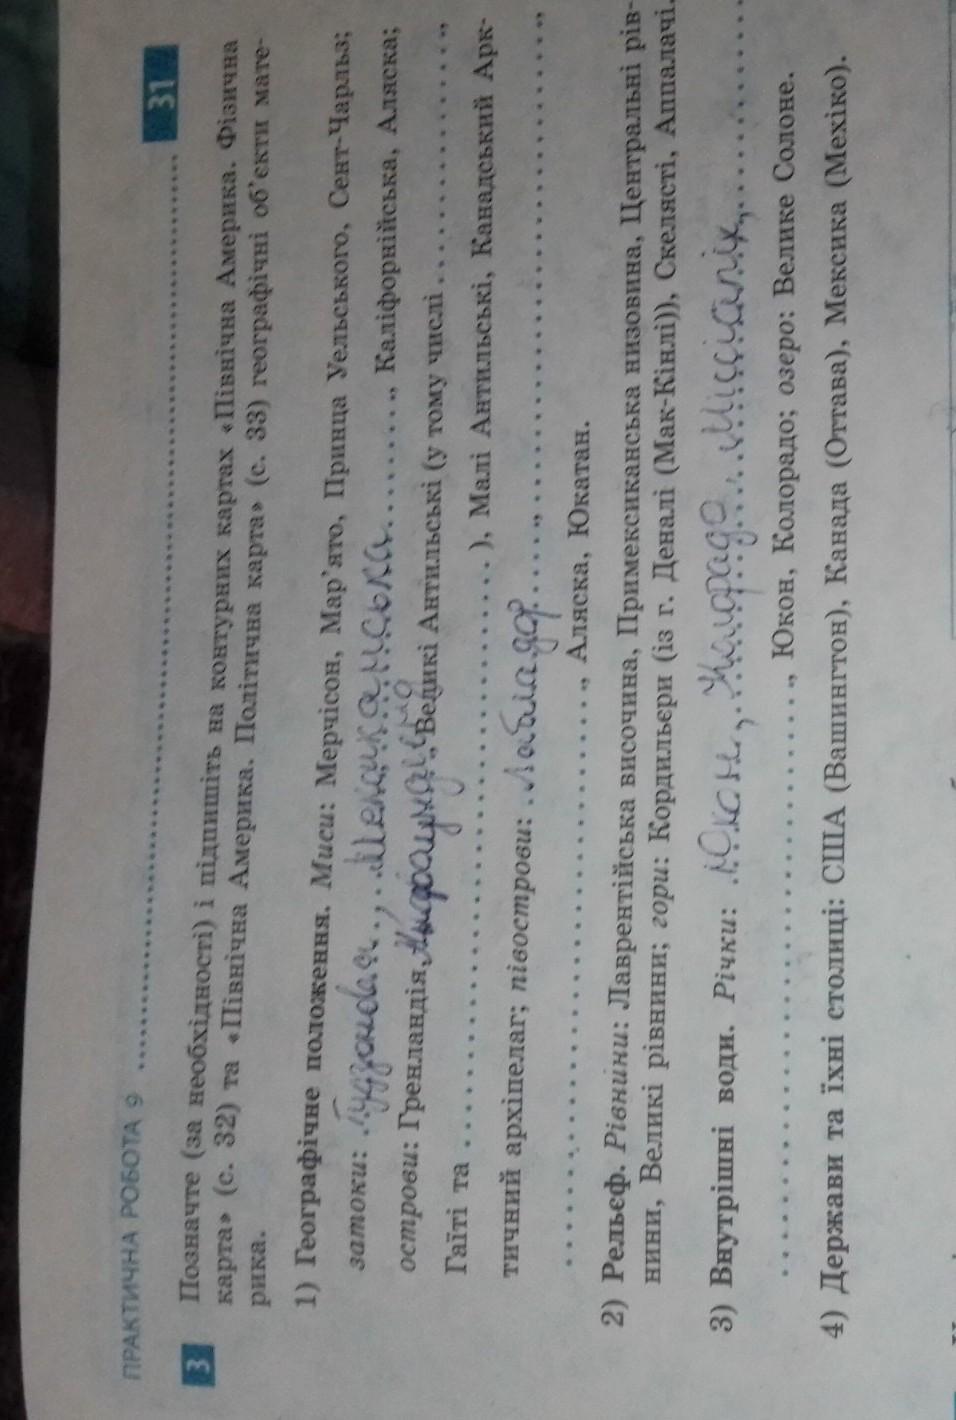 ПРАКТИЧНА РОБОТА 9 31
3 Позначте (за необхідності) і підпишіть на контурних картах «Північна Америка. Фізична
карта» (с. 32) та «Північна Америка. Політична карта» (с. 33) географічні об'єкти мате-
рика.
1) Географічне положення. Миси: Мерчісон, Мар'ято, Принца Уельського, Сент-Чарльз;
затоки: Гудзонова, Мексиканська, Каліфорнійська, Аляска;
острови: Гренландія, Великі Антильські (у тому числі
Гаїті та ), Малі Антильські, Канадський Арк-
тичний архіпелаг; півострови: Лабладор, ,
, Аляска, Юкатан.
2) Рельєф. Рівнини: Лаврентійська височина, Примексиканська низовина, Центральні рів-
нини, Великі рівнини; гори: Кордильєри (із г. Деналі (Мак-Кінлі)), Скелясті, Аппалачі.
3) Внутрішні води. Річки: Юкон, Колорадо, Міссісіпі,
, Юкон, Колорадо; озеро: Велике Солоне.
4) Держави та їхні столиці: США (Вашингтон), Канада (Оттава), Мексика (Мехіко).